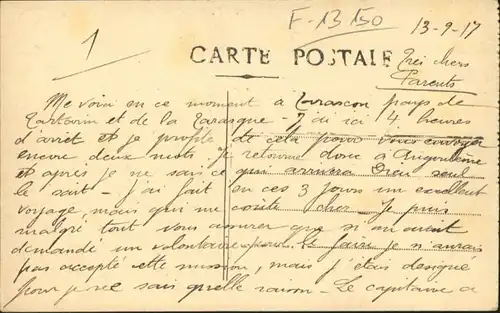 1
F-13 150
13-9-17
CARTE POSTALE
Très chers
Parents
Me voici en ce moment à Tarascon pays de
Tartarin et de la Tarasque - J'ai ici 4 heures
d'arrêt et je profite de cela pour vous envoyer
encore deux mots. Je retourne donc à Angoulême
et après je ne sais ce qui arrivera Dieu seul
le sait - j'ai fait en ces 3 jours un excellent
voyage, mais qui me coûte cher - Je puis
malgré tout vous assurer que si on avait
demandé un volontaire pour le faire je n'aurais
pas accepté cette mission, mais j'étais désigné
pour je ne sais quelle raison - Le capitaine a